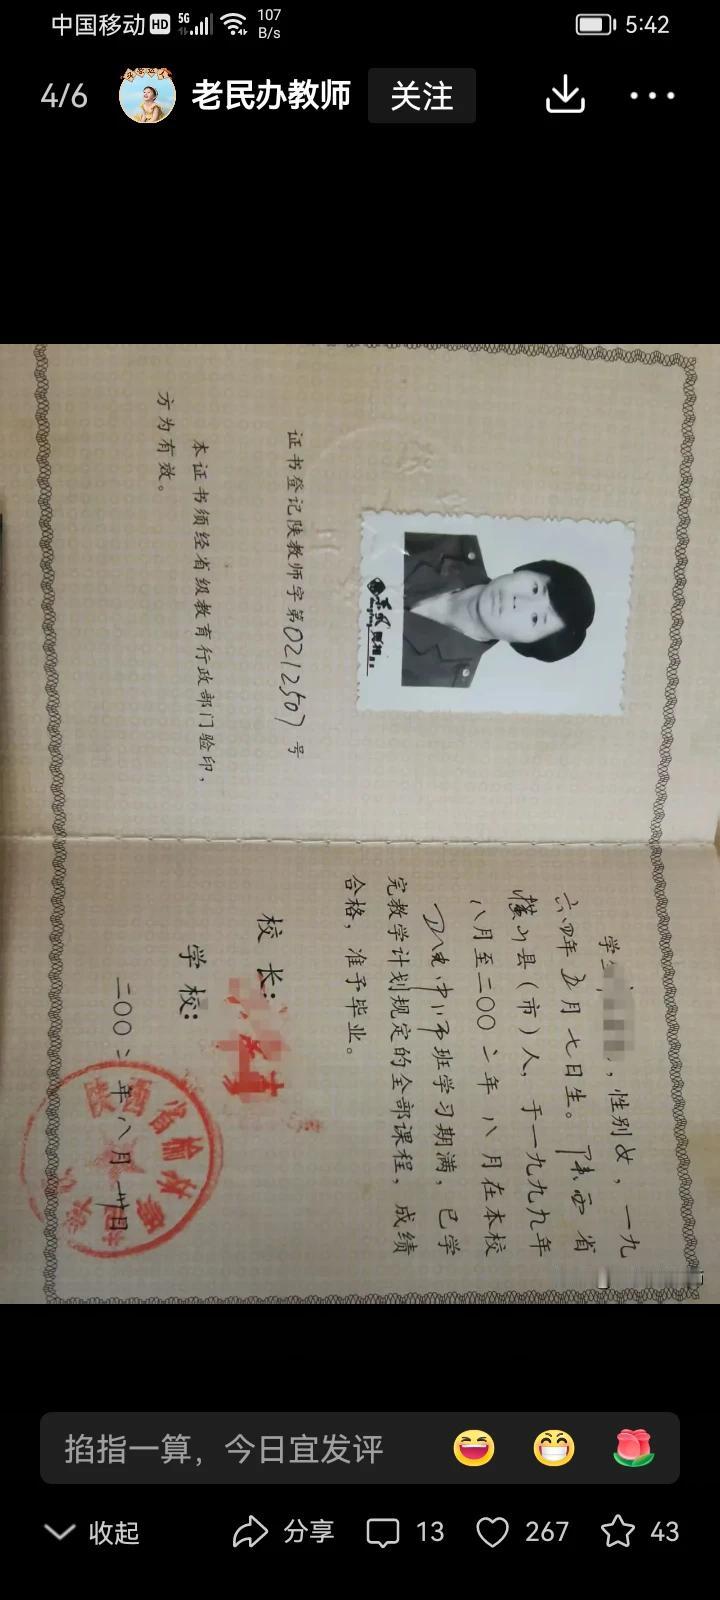 中国移动 HD 5G 107 B/s 5:42
4/6 老民办教师 关注
证书登记陕教师字第0212507号
本证书须经省级教育行政部门验印，
方为有效。
学生 ，性别女，一九
六四年五月七日生。陕西省
横山县（市）人，于一九九九年
八月至二〇〇二年八月在本校
班学习期满，已学
完教学计划规定的全部课程，成绩
合格，准予毕业。
校长：
学校：
二〇〇二年八月 日
陕西省榆林
掐指一算，今日宜发评
收起 分享 13 267 43